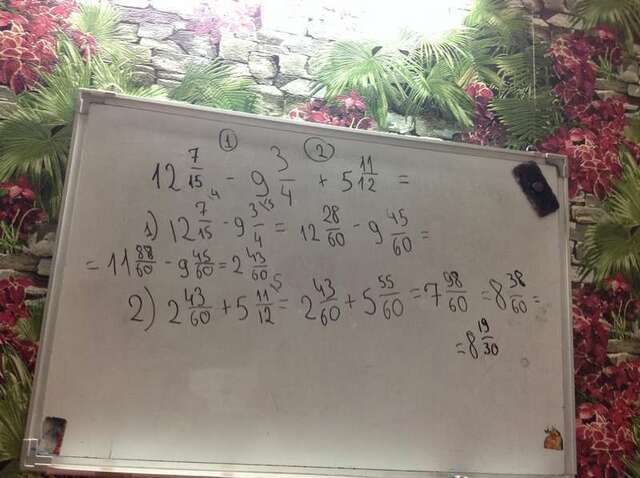 ① ②
12 7/15 - 9 3/4 + 5 11/12 =
1) 12 7/15 ⁴ - 9 3/4 ¹⁵ = 12 28/60 - 9 45/60 =
= 11 88/60 - 9 45/60 = 2 43/60
2) 2 43/60 + 5 11/12 ⁵ = 2 43/60 + 5 55/60 = 7 98/60 = 8 38/60 =
= 8 19/30